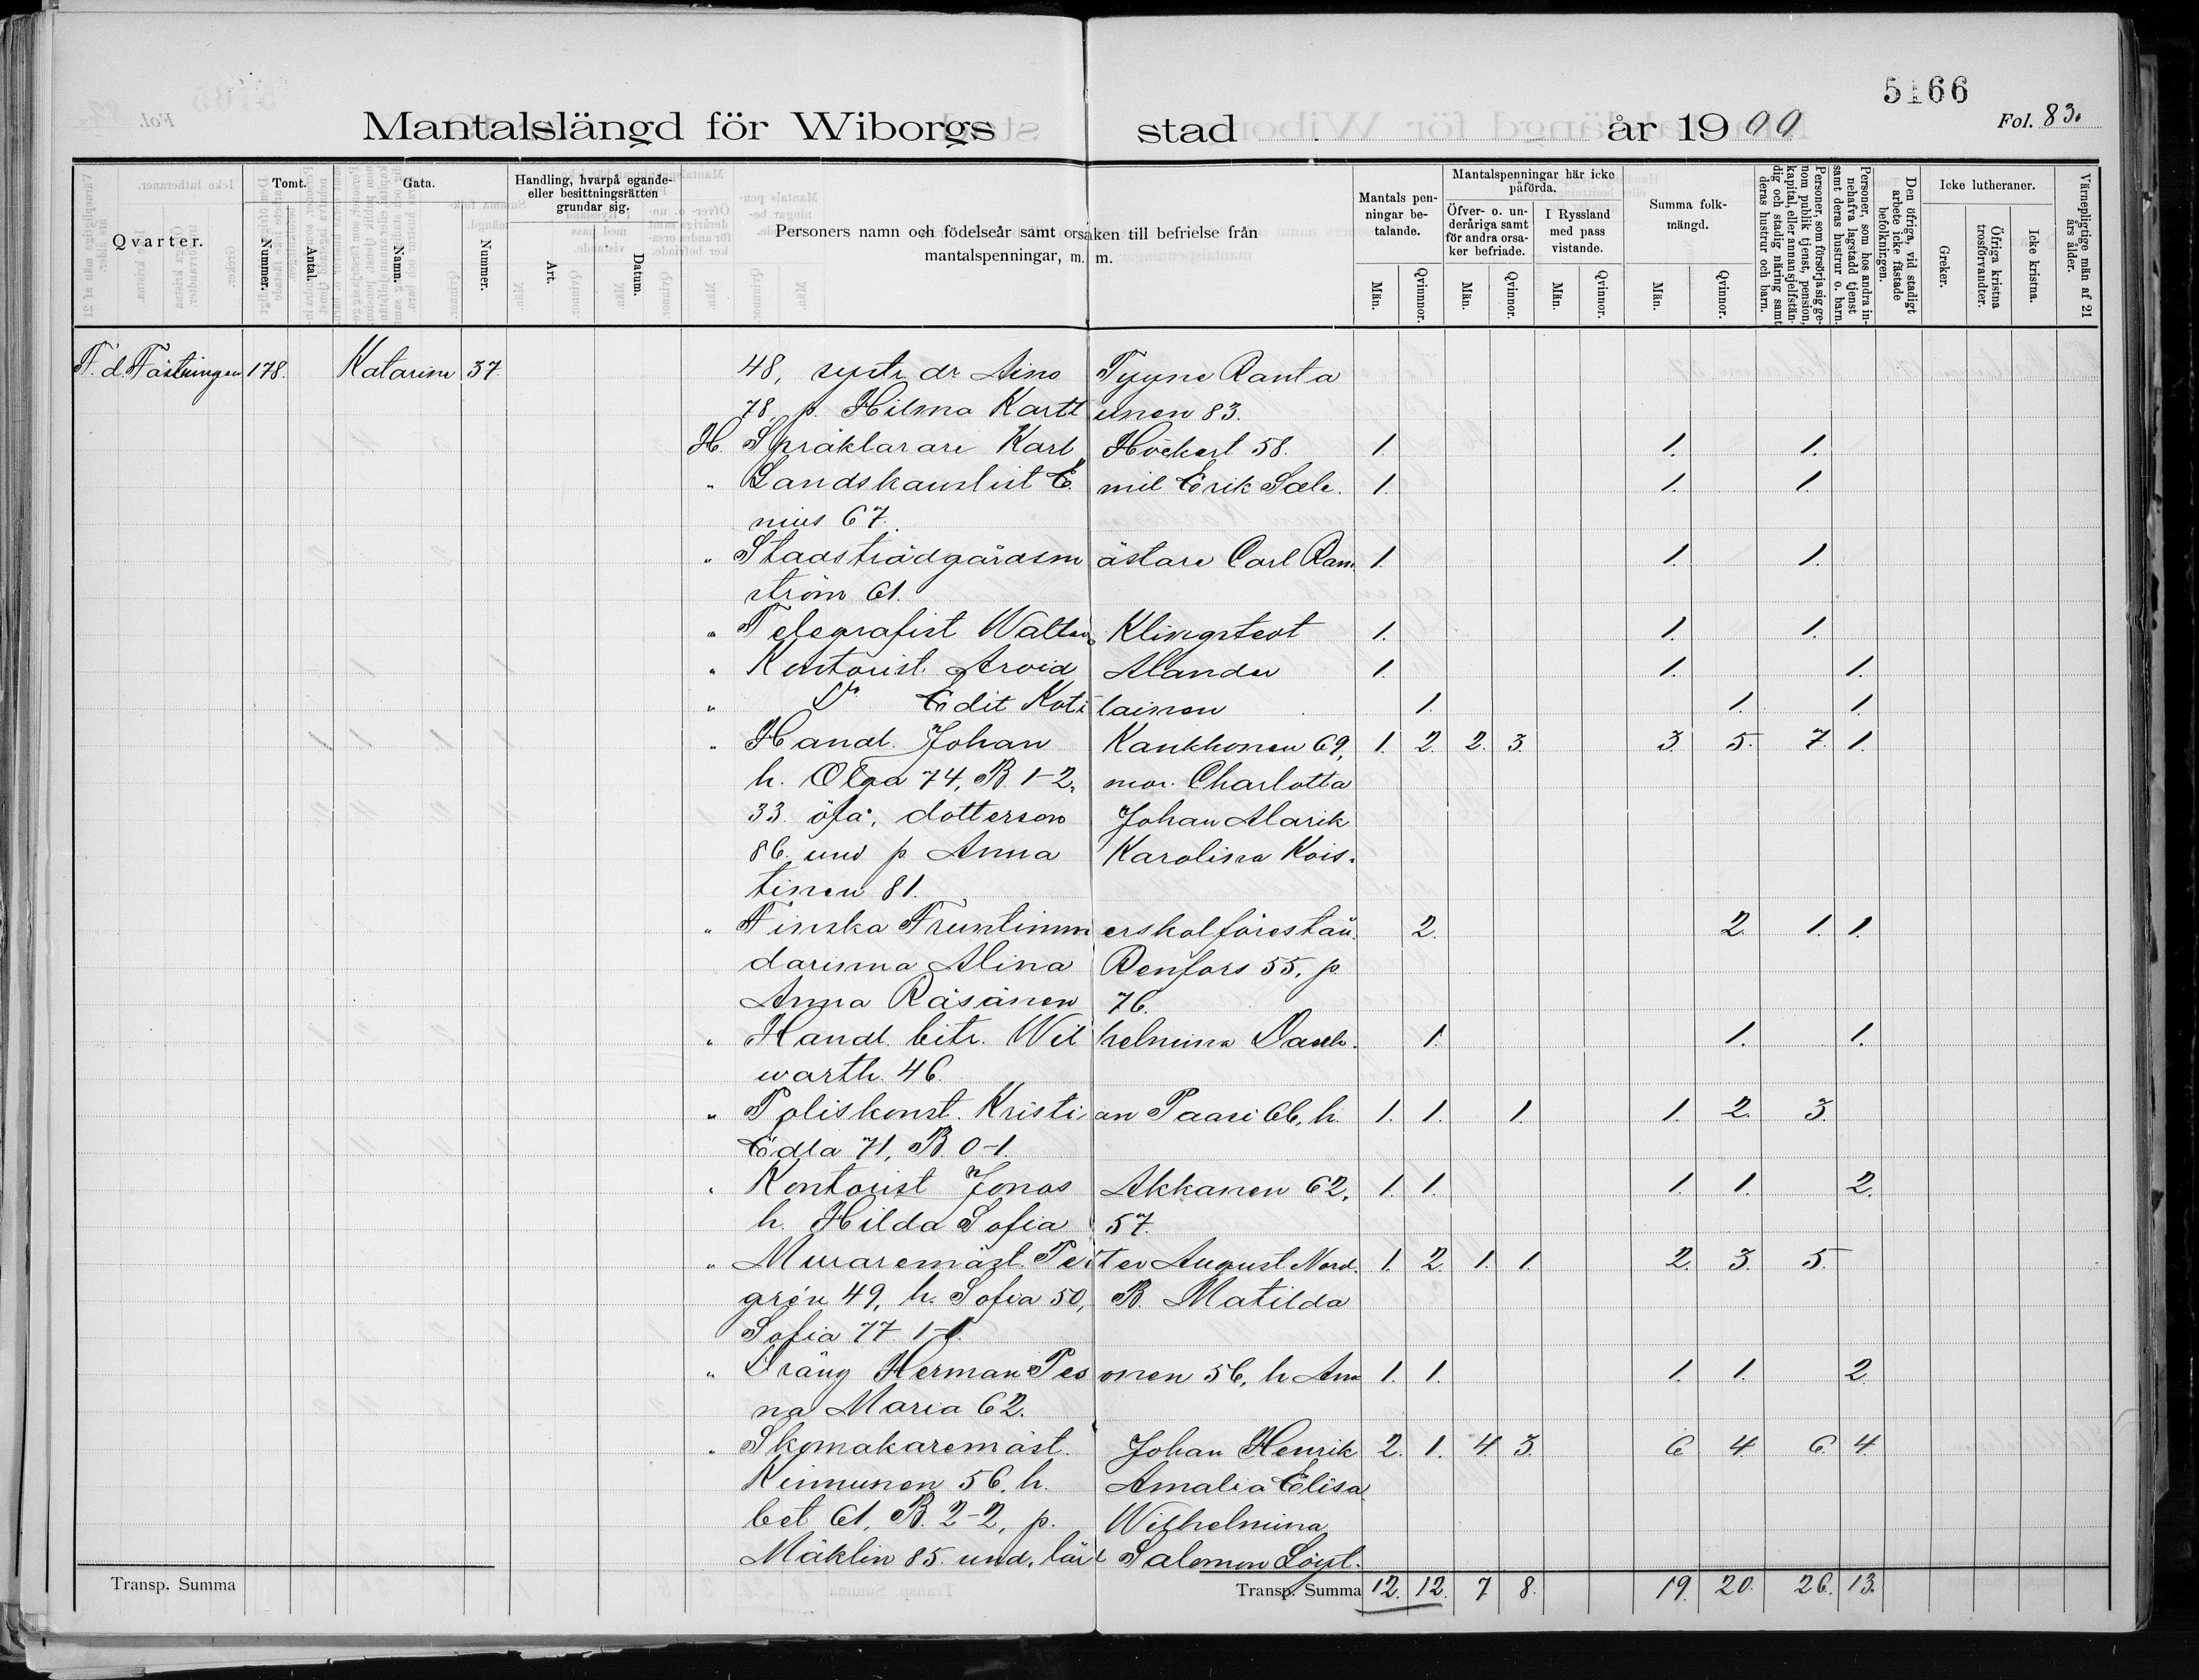 5166
Mantalslängd för Wiborgs stad år 1900 Fol. 83.
Qvarter.
Tomt.
Nummer.
Antal.
Gata.
Namn.
Nummer.
Handling, hvarpå egande- eller besittningsrätten grundar sig.
Art.
Datum.
Personers namn och födelseår samt orsaken till befrielse från mantalspenningar, m. m.
Mantals penningar betalande.
Män.
Qvinnor.
Mantalspenningar här icke påförda.
Öfver- o. underåriga samt för andra orsaker befriade.
Män.
Qvinnor.
I Ryssland med pass vistande.
Män.
Qvinnor.
Summa folkmängd.
Män.
Qvinnor.
Personer, som försörja sig genom publik tjenst, pension, kapital, eller annan sjelfständig och stadig näring samt deras hustrur och barn.
Personer, som hos andra innehafva lagstadd tjenst samt deras hustrur o. barn.
Den öfriga, vid stadigt arbete icke fästade befolkningen.
Icke lutheraner.
Greker.
Öfriga kristna trosförvandter.
Icke kristna.
Värnepligtige män af 21 års ålder.
F. d. Fästningen 178. Katarine 37 48, syste dr Aino Tyyne Ranta
78, p. Hilma Kartt unen 83.
H. Språklärare Karl Höckert 58. 1. 1. 1.
" Landskanslist E mil Erik Sele. 1. 1. 1.
nius 67.
" Stadsträdgårdsm ästare Carl Ram 1. 1. 1.
ström 61.
" Telegrafist Walter Klingstedt 1. 1. 1.
" Kontorist Arvid Alander 1. 1. 1.
" Dr Edit Koti lainen 1. 1. 1.
" Handl. Johan Kaukhonen 69, 1. 2. 2. 3. 3. 5. 7. 1.
h. Olga 74, B. 1-2, mor. Charlotta
33. öfå, dotterson Johan Alarik
86. und p. Anna Karolina Kois.
tinen 81.
" Finska Fruntimm erskolföreståň. 2. 2. 1. 1.
darinna Alina Renfors 55, p.
Anna Räsänen 76.
" Handl. bitr. Wil helmina Dach. 1. 1. 1.
warth. 46.
" Poliskonst. Kristi an Paasi 66, h. 1. 1. 1. 1. 2. 3.
Edla 71, B. 0-1.
" Kontorist Jonas Akkanen 62, 1. 1. 1. 1. 2.
h. Hilda Sofia 57.
" Muraremäst. Pet ter August Nord. 1. 2. 1. 1. 2. 3. 5.
grén 49, h. Sofia 50, B. Matilda
Sofia 77. 1-1.
" Dräng Herman Pes onen 56, h Ann 1. 1. 1. 1. 2.
na Maria 62.
" Skomakaremäst. Johan Henrik 2. 1. 4. 3. 6 4. 6. 4.
Kinnunen 56, h. Amalia Elisa
bet 61, B. 2-2, p. Wilhelmina
Mäklin 85. und. lärl Salomon Löyt.
Transp. Summa Transp. Summa 12. 12. 7 8. 19. 20. 26. 13.